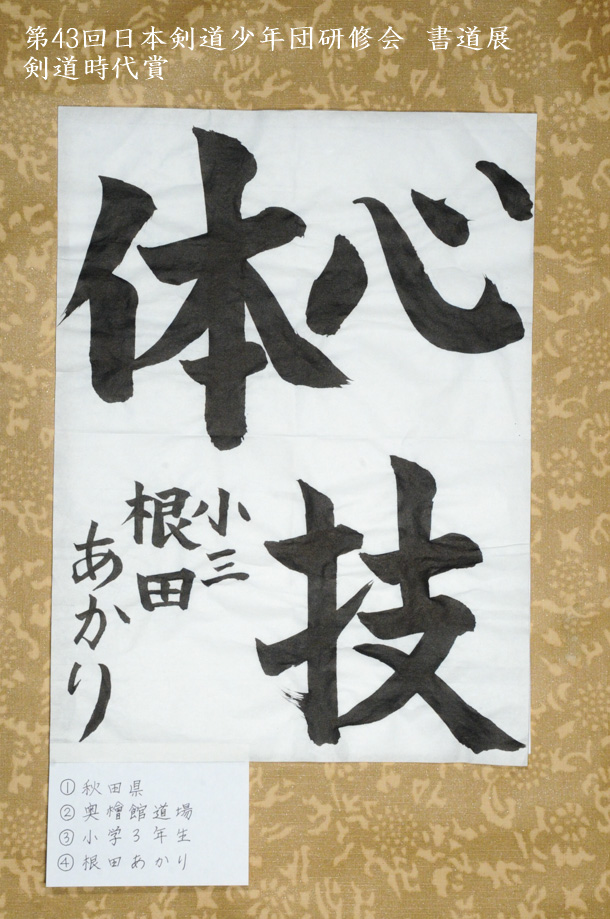 第43回日本剣道少年団研修会 書道展
剣道時代賞
心技
体
小三
根田
あかり
①秋田県
②奥檜館道場
③小学3年生
④根田あかり